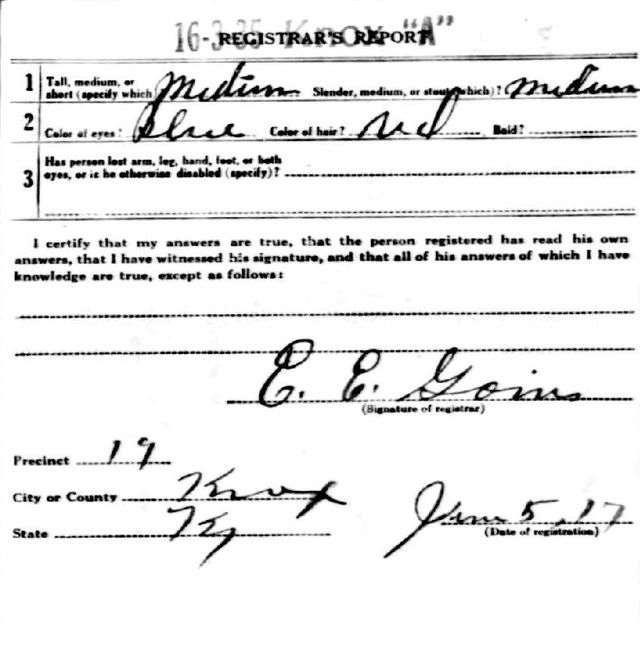 16-3-35 Knox "A"
REGISTRAR'S REPORT
1 Tall, medium, or short (specify which) Medium Slender, medium, or stout (which)? Medium
2 Color of eyes? Blue Color of hair? Red Bald?
3 Has person lost arm, leg, hand, foot, or both eyes, or is he otherwise disabled (specify)?
I certify that my answers are true, that the person registered has read his own
answers, that I have witnessed his signature, and that all of his answers of which I have
knowledge are true, except as follows:
E. E. Goins
(Signature of registrar)
Precinct 19
City or County Knox
State Ky
June 5, 17
(Date of registration)